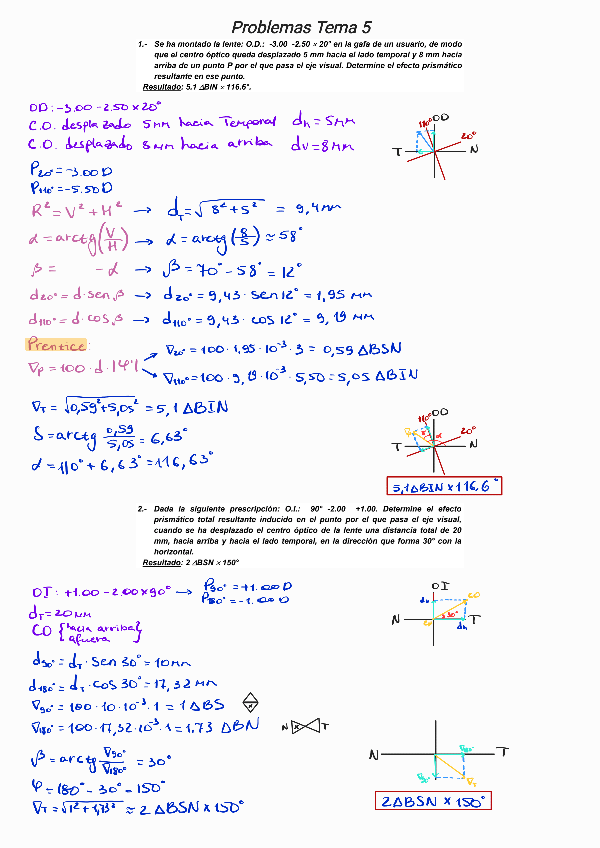 Problemas Tema 5
1.- Se ha montado la lente: O.D.: -3.00 -2.50 × 20° en la gafa de un usuario, de modo
que el centro óptico queda desplazado 5 mm hacia el lado temporal y 8 mm hacia
arriba de un punto P por el que pasa el eje visual. Determine el efecto prismático
resultante en ese punto.
Resultado: 5.1 ΔBIN × 116.6°.
OD: -3.00 -2.50 × 20°
C.O. desplazado 5mm hacia Temporal dh = 5mm
C.O. desplazado 8mm hacia arriba dv = 8mm
110° OD
20°
T N
P20° = -3.00 D
P110° = -5.50 D
R² = V² + H² → dT = √8² + 5² = 9,4 mm
α = arctg(V/H) → α = arctg(8/5) ≈ 58°
β = -α → β = 70° - 58° = 12°
d20° = d · sen β → d20° = 9,43 · sen 12° = 1,95 mm
d110° = d · cos β → d110° = 9,43 · cos 12° = 9,19 mm
Prentice:
∇p = 100 · d · |P'|
∇20° = 100 · 1,95 · 10⁻³ · 3 = 0,59 ΔBSN
∇110° = 100 · 9,19 · 10⁻³ · 5,50 = 5,05 ΔBIN
∇T = √0,59² + 5,05² = 5,1 ΔBIN
δ = arctg 0,59/5,05 = 6,63°
α = 110° + 6,63° = 116,63°
110° OD
20°
T N
5,1 ΔBIN × 116.6°
2.- Dada la siguiente prescripción: O.I.: 90° -2.00 +1.00. Determine el efecto
prismático total resultante inducido en el punto por el que pasa el eje visual,
cuando se ha desplazado el centro óptico de la lente una distancia total de 20
mm, hacia arriba y hacia el lado temporal, en la dirección que forma 30° con la
horizontal.
Resultado: 2 ΔBSN × 150°
OI: +1.00 -2.00 × 90° → P90° = +1.00 D
P180° = -1.00 D
dT = 20 mm
CO {hacia arriba
afuera}
OI
dv CO
30°
N CO dh T
d90° = dT · sen 30° = 10 mm
d180° = dT · cos 30° = 17,32 mm
∇90° = 100 · 10 · 10⁻³ · 1 = 1 ΔBS
∇180° = 100 · 17,32 · 10⁻³ · 1 = 1.73 ΔBN
N T
β = arctg ∇90°/∇180° = 30°
φ = 180° - 30° = 150°
∇T = √1² + 1,73² ≈ 2 ΔBSN × 150°
N ∇180° T
∇90° ∇T
2 ΔBSN × 150°